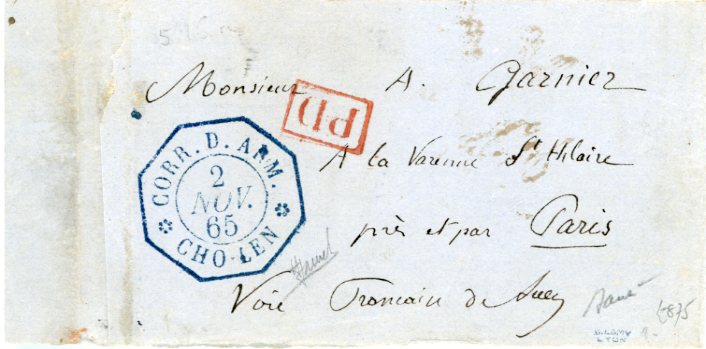 Monsieur A. Garnier
PD
A la Varenne St Hilaire
près et par Paris
Voie
de Suez
CORR. D. ARM.
2
NOV.
65
CHO-LEN